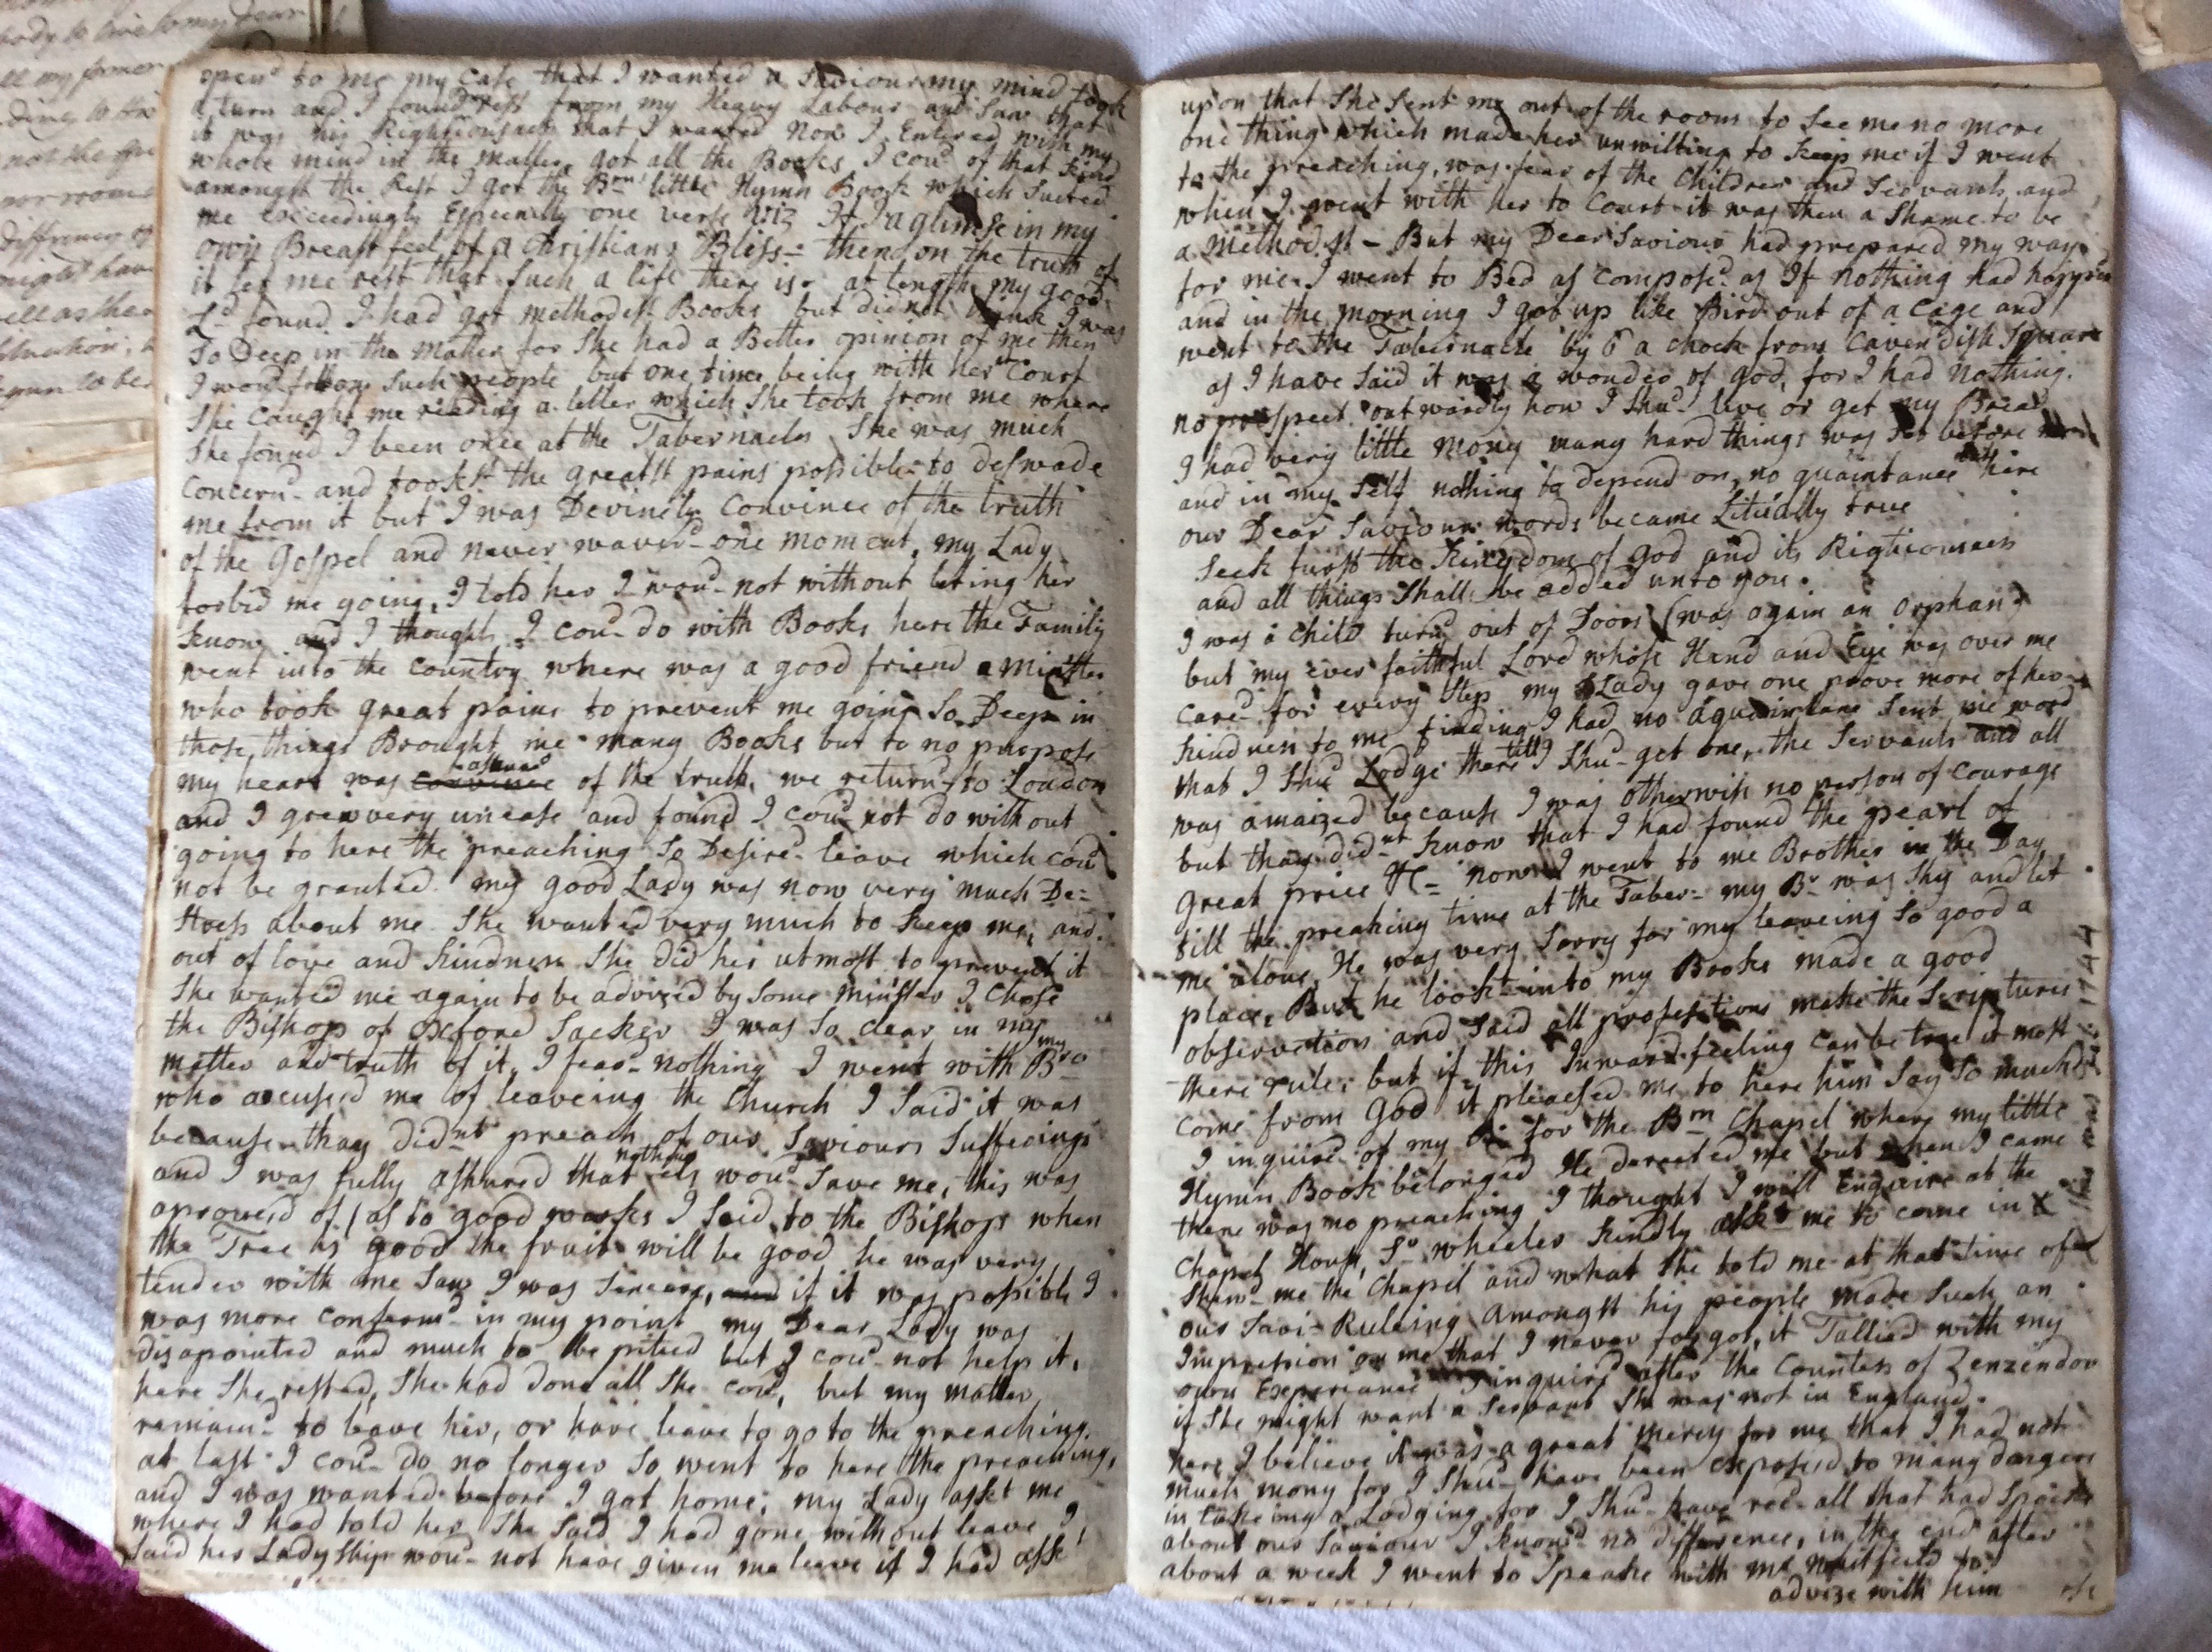 open'd to me my Case that I wanted a Saviour my mind took
a turn and I found rest from my Heavy Labour and Saw that
it was his Righteousness that I wanted Now I Entered with my
whole mind in the matter, got all the Books I cou'd of that kind
amongst the Rest I got the Brn little Hymn Book which Suited
me exceedingly Especially one verse viz If I a glimse in my
own Breast feel of a Christians Bliss - then on the truth of
it let me rest that Such a life there is - at length my good
Ld found I had got methodest Books but did not think I was
So Deep in the Matter for She had a Better opinion of me then
I wou'd follow Such people but one time being with her at Court
She Caught me reading a letter which She took from me where
She found I been once at the Tabernacle She was much
Concern'd and took the greatst pains possible to deswade
me from it but I was Devinely Convince of the truth
of the Gospel and never waver'd one moment, my Lady
forbid me going, I told her I wou'd not without leting her
know and I thought I cou'd do with Books here the Family
went into the country where was a good friend a Minster
who took great pains to prevent me going So Deep in
those things Brought me many Books but to no purpose
my heart was assured of the truth, we return'd to London
and I grew very unease and found I cou'd not do without
going to here the preaching So Desire'd leave which cou'd
not be granted. my good Lady was now very much De=
stress about me She wanted very much to keep me, and
out of love and kindness She did her utmost to prevent it
She wanted me again to be advized by Some Minster I Chose
the Bishop of Oxford Secker I was So clear in my
matter and truth of it, I fear'd nothing I went with my Br
who accused me of leaveing the Church I Said it was
because thay didnt preach of our Saviours Sufferings
and I was fully asshured that nothing els wou'd Save me, this was
aproved of / as to good works I Said to the Bishop when
the Tree is good the fruit will be good he was very
tender with me Saw I was Sincere, and if it was possible I
was more conferm'd in my point my Dear Lady was
disapointed and much to be pitied but I cou'd not help it,
here She rested, She had done all She cou'd, but my matter
remain'd to leave her, or have leave to go to the preaching.
at last I cou'd do no longer So went to here the preaching,
and I was wanted before I got home, my Lady asket me
where I had told her She Said I had gone without leave I
Said her LadyShip wou'd not have given me leave if I had ask'
upon that She Sent me out of the room to See me no more
one thing which made her unwilling to keep me if I went
to the preaching, was fear of the Children and Servants and
when I went with her to Court it was then a Shame to be
a Methodist - But my Dear Saviour had prepared my way
for me. I went to Bed as Compos'd as If nothing had happen
and in the morning I got up like Bird out of a Cage and
went to the Tabernacle by 6 a clock from Cavendish Square
as I have Said it was a wonder of god, for I had nothing.
no prospect outwardly how I Shu'd live or get my Bread
I had very little mony many hard things was Set before me
and in my Self nothing to depend on, no quaintance but here
our Dear Saviour words became Literally true
Seek furst the Kingdom of god and its Rigtiousness
and all things Shall be added unto you.
I was a child turn'd out of Doors (was again an orphan)
but my ever faithful Lord whose Hand and Eye was over me
care'd for every Step my Lady gave one prove more of her
kindness to me finding I had no aquaintance Sent me word
that I Shu'd Lodge there till I Shu'd get one, the Servants and all
was amaized because I was otherwise no person of Courage
but thay didnt know that I had found the pearl of
great price &c - now I went to me Brother in the Day
till the preaching time at the Taber - my Br was Shy and let
me alone, He was very Sorry for my leaveing So good a
place, But he look'd into my Books made a good
observation and Said all professitions make the Scriptures
there rule, but if this Inward feeling can be true it most
come from God it pleased me to here him Say So much
I inquire'd of my Br for the Brn Chapel where my little
Hymn Book belonged He derected me but when I came
there was no preaching I thought I will Enquire at the
Chapel House, Sr wheeler kindly askt me to come in &
Shew'd me the Chapel and what She told me at that time of
our Savi - Ruleing amongst his people made Such an
Impression on me that I never forgot, it Tallied with my
own Experiance I inquire'd after the Countess of Zenzendou
if She might want a Servant She was not in England.
here I believe it was a great mercy for me that I had not
much mony for I Shu'd have been exposed to many dangers
in takeing a Lodging for I Shu'd have rec'd all that had Spoke
about our Saviour I know'd no difference, in the end after
about a week I went to Speake with mr whitfield to
advize with him
this was in 1744